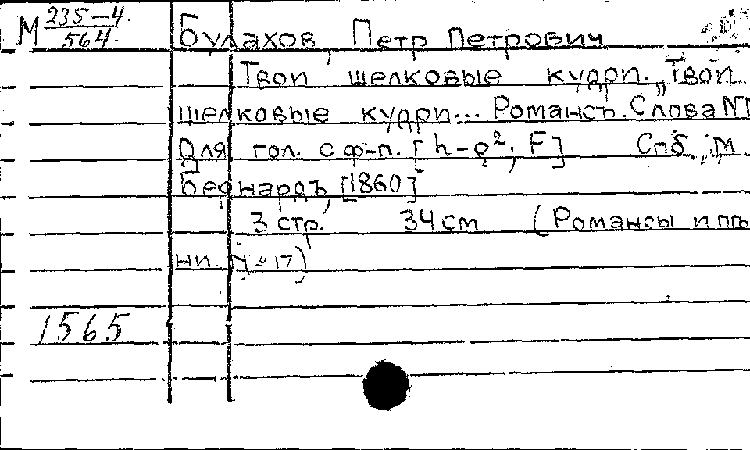 М 235-4/564 Булахов, Петр Петрович
Твои шелковые кудри. „Твои
шелковые кудри... Романсъ. Слова NN
Для гол. с ф-п. [h-g², F] Спб., М.
Бернардъ, [1860]
3 стр. 34 см (Романсы и пѣ
ни. № 17)
1565